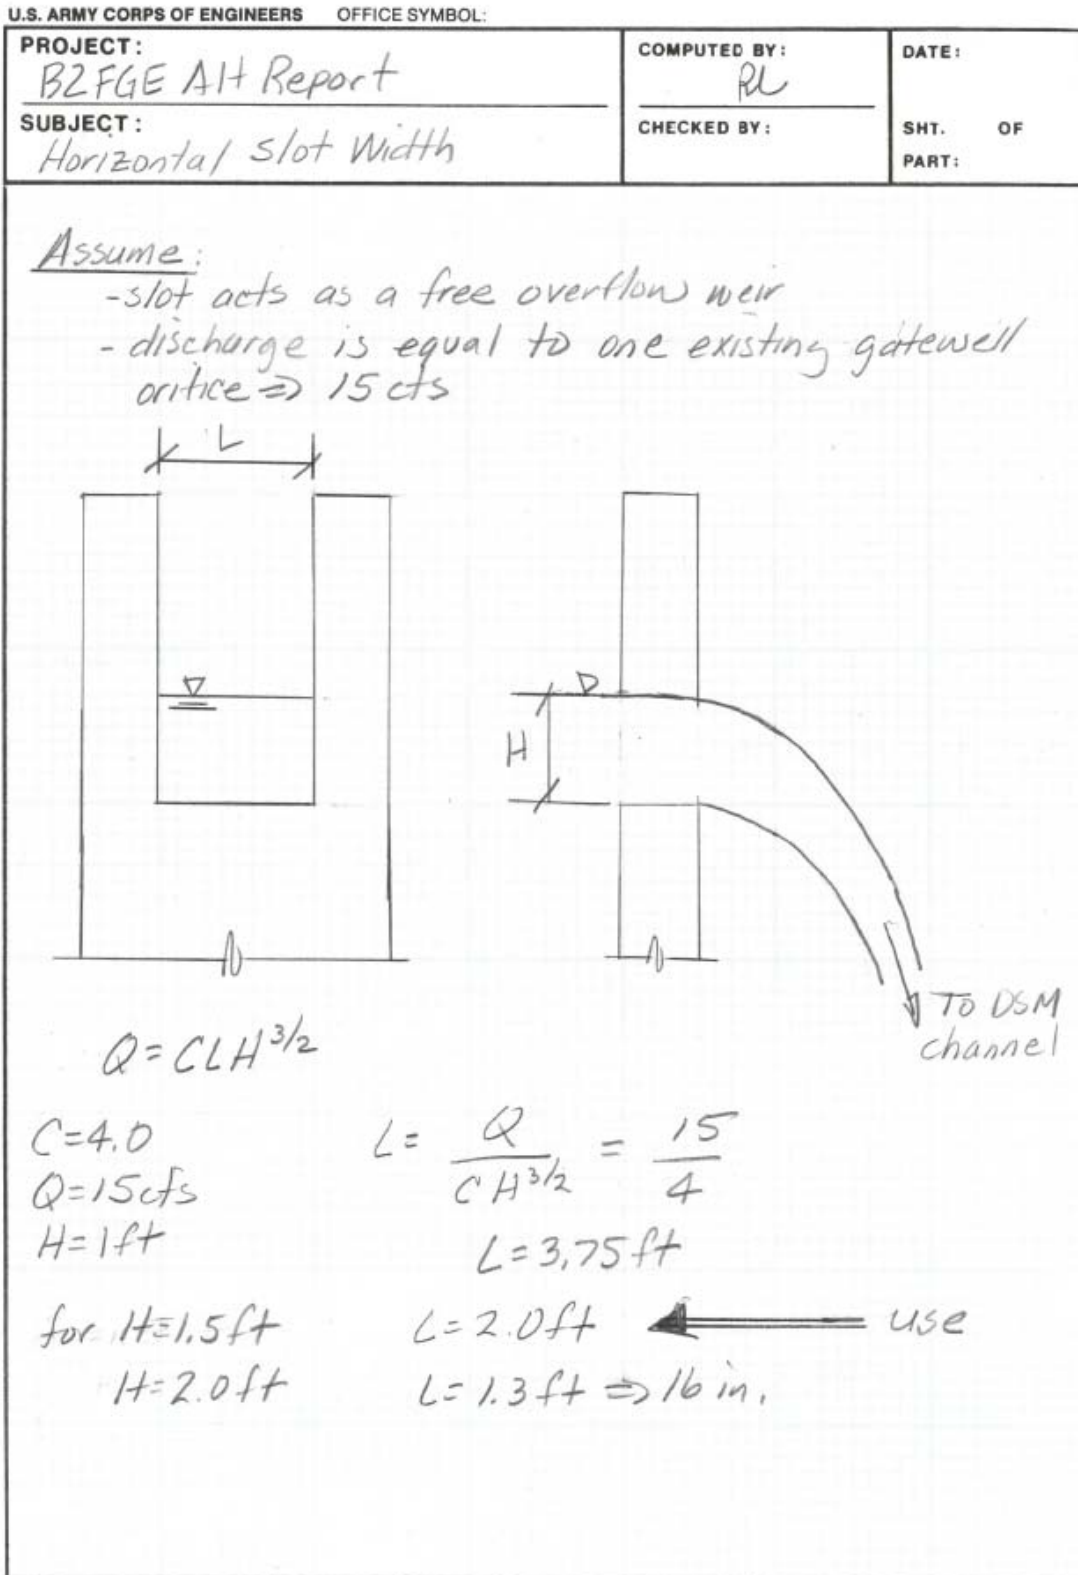 U.S. ARMY CORPS OF ENGINEERS OFFICE SYMBOL:
PROJECT:
B2FGE Alt Report
COMPUTED BY:
RL
DATE:
SUBJECT:
Horizontal Slot Width
CHECKED BY:
SHT. OF
PART:
Assume:
-slot acts as a free overflow weir
- discharge is equal to one existing gatewell
orifice => 15 cfs
L
H
To DSM
channel
Q = CLH^3/2
C=4.0
Q=15cfs
H=1ft
L = Q / CH^3/2 = 15 / 4
L=3.75ft
for H=1.5ft L=2.0ft use
H=2.0ft L=1.3ft => 16 in.